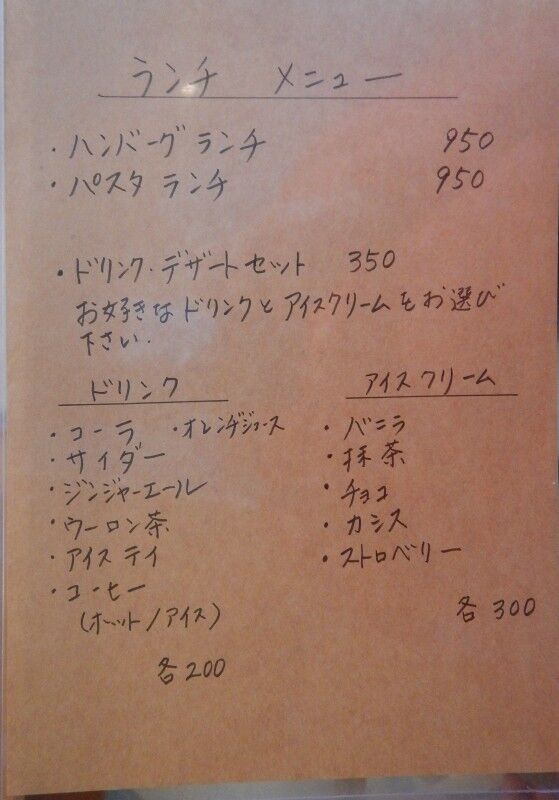 ランチ メニュー
・ハンバーグ ランチ 950
・パスタ ランチ 950
・ドリンク・デザートセット 350
お好きなドリンクとアイスクリームをお選び
下さい.
ドリンク
・コーラ ・オレンヂジュース
・サイダー
・ジンジャーエール
・ウーロン茶
・アイスティ
・コーヒー
(ホット/アイス)
各200
アイスクリーム
・バニラ
・抹茶
・チョコ
・カシス
・ストロベリー
各300